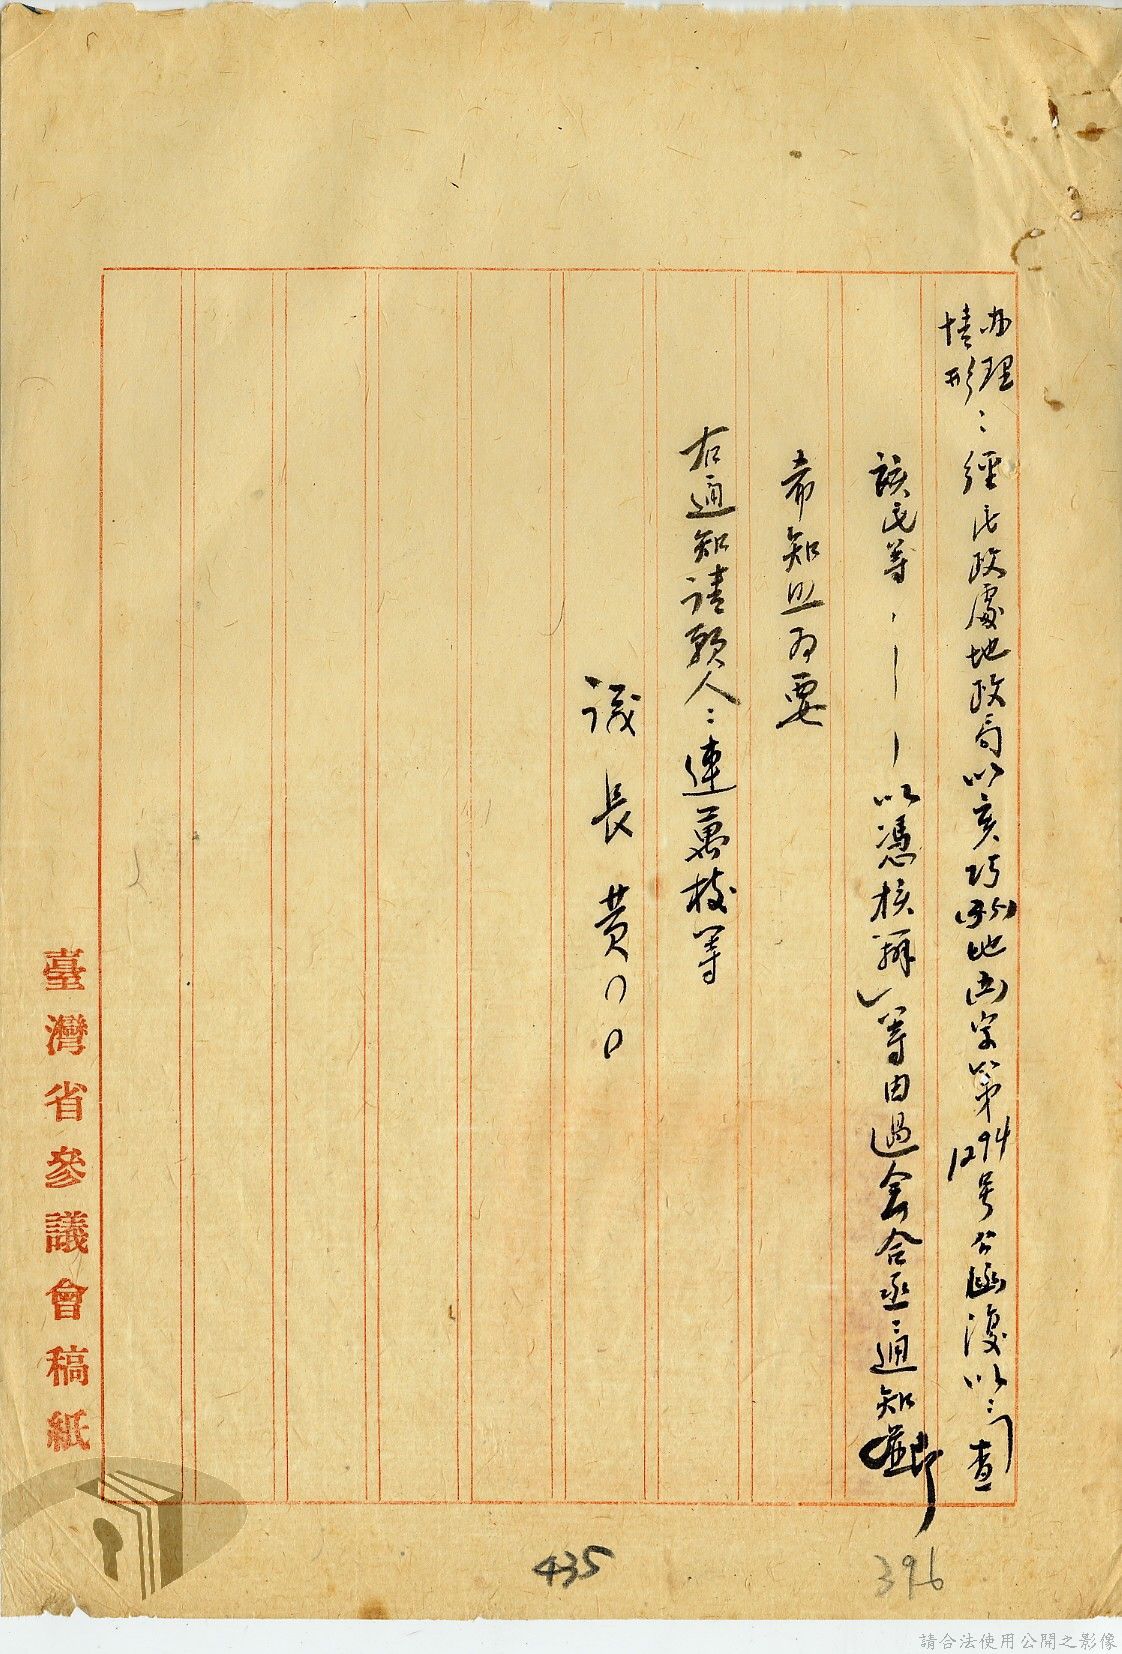 办理情形：經民政處地政局以亥巧(35)地丙字第1294号公函復以：「查
該民等，——以憑核辦」等由過會合亟通知並即
希知照為要
右通知請願人：連萬枝等
議長黃〇〇
臺灣省參議會稿紙
435
396
請合法使用公開之影像